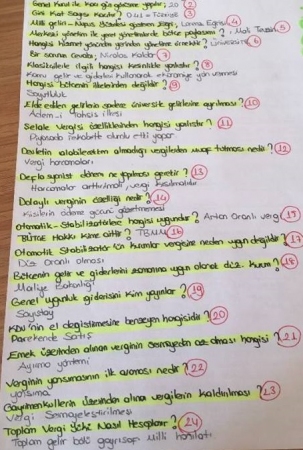 Genel Kurul ile kaç gün görüşme yapılır; 20 2
Gini Kat Sayısı Kaçtır? 0.41 = Türkiye 3
Milli gelir - Nüfus ilişkisi gösteren eğri, Lorenz Eğrisi 4
Merkezi yönetim ile yerel yönetimlerde bütçe paylaşımı? Mali Tevzin 5
Hangisi hizmet yönünden yerinden yönetime örnektir? Üniversite 6
Bir sorunun cevabı; Nicolas Kaldor 7
Klasiklerle ilgili hangisi kesinlikle yanlıştır? 8
Kamu gelir ve giderleri kullanarak ekonomiye yön vermesi
Hangisi bütçenin ilkelerinden değildir? 9
Sayıtlılık
Elde edilen gelirlerin sadece üniversite gelirlerine ayrılması? 10
Adem-i Tahsis ilkesi
Şelale Vergisi özelliklerinden hangisi yanlıştır? 11
Piyasada rekabeti olumlu etki yapar
Devletin alabilecekken almadığı vergilerden muaf tutması nedir? 12
Vergi harcamaları
Deflasyonist dönem ne yapılması gerekir? 13
Harcamalar arttırılmalı, vergi kısılmalıdır
Dolaylı verginin özelliği nedir? 14
Kişilerin ödeme gücünü gözetmemesi
Otomatik-Stabilizatörlere hangisi uygundur? Artan Oranlı vergi 15
Bütçe Hakkı kime aittir? TBMM 16
Otomatik Stabilizatör için Kurumlar vergisine neden uygun değildir? 17
Düz Oranlı olması
Bütçenin gelir ve giderlerini zamanına uygun olarak düz. Kurum? 18
Maliye Bakanlığı
Genel uygunluk bildirisini Kim yayınlar? 19
Sayıştay
KDV'nin el değiştirmesine benzeyen hangisidir? 20
Perakende Satış
Emek üzerinden alınan verginin sermayeden az olması hangisi? 21
Ayırma yöntemi
Verginin yansımasının ilk aşaması nedir? 22
yansıma
Gayrimenkullerin üzerinden alınan vergilerin kaldırılması? 23
Vergi Sermayeleştirilmesi
Toplam Vergi Yükü Nasıl Hesaplanır? 24
Toplam gelir bölü gayrisafi milli hasılatı